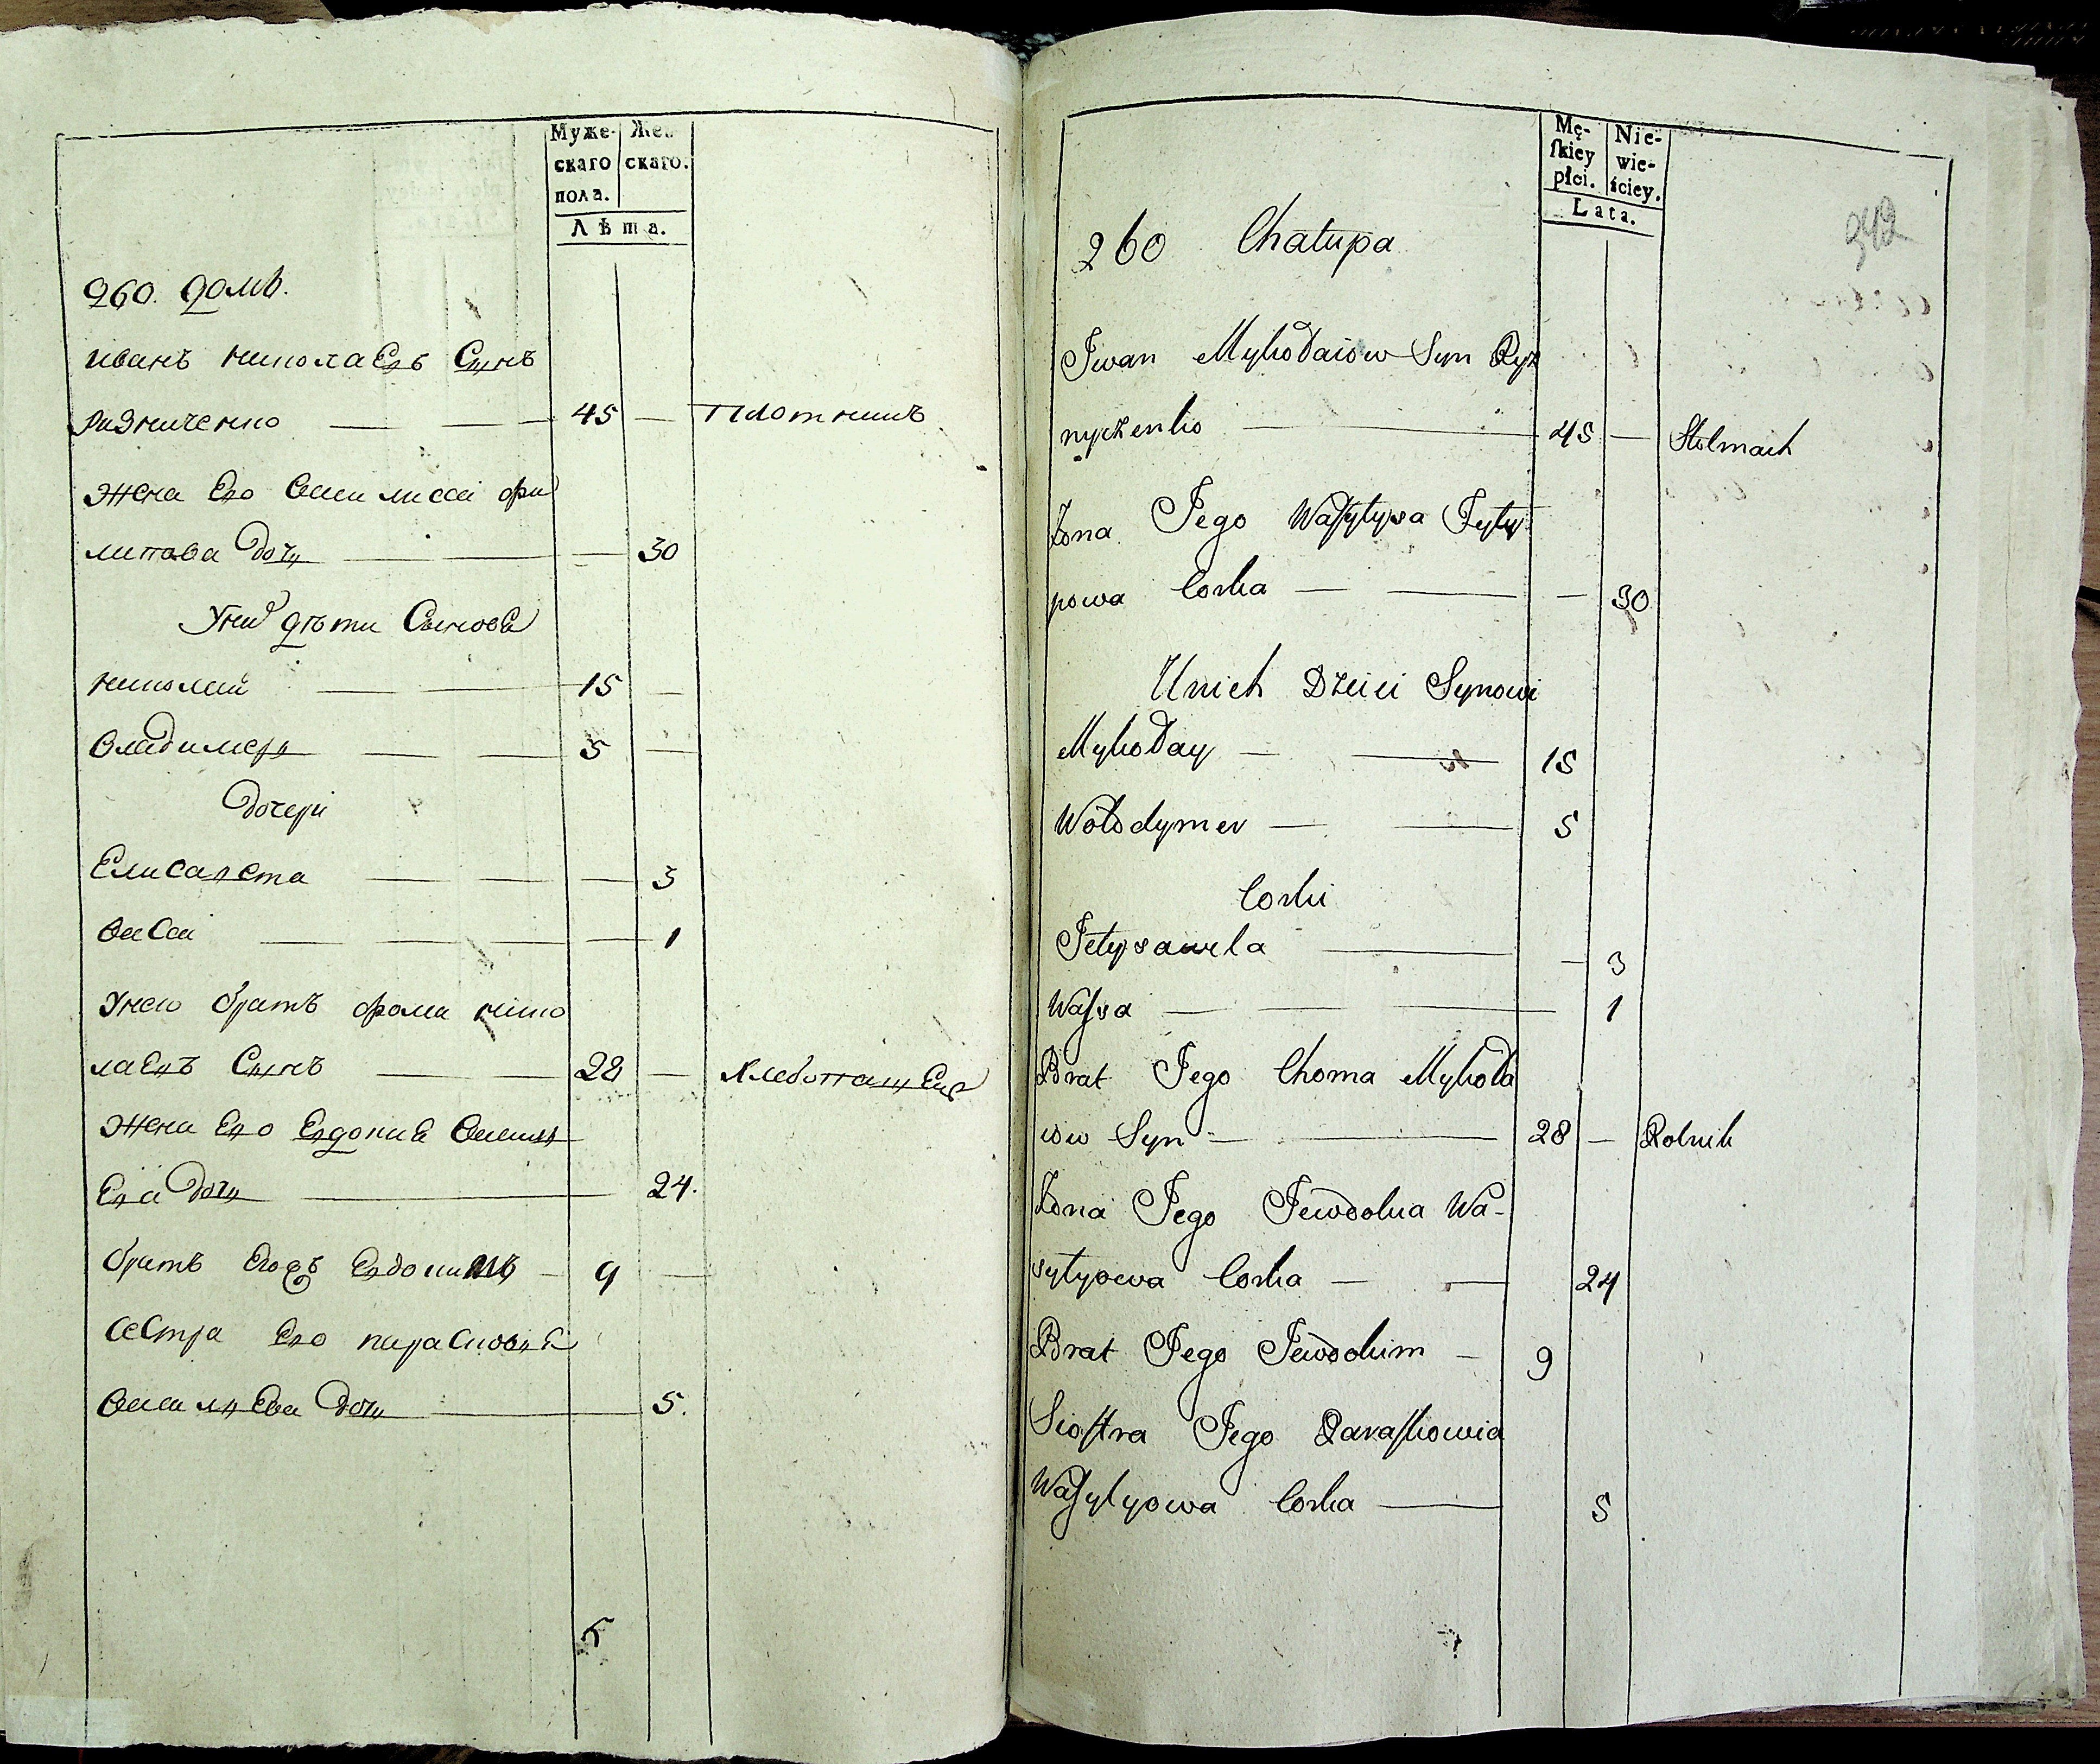 Муже- Жен
скаго скаго.
пола.
Лѣта.
260. домъ.
иванъ николаевъ Сынъ
ризниченко — — — 45 — Плотникъ
жена Его василиса фи
липова дочь — — 30
Унихъ дѣти Сыновя
николай — — 15 —
владимеръ — — 5 —
дочери
Елисавета — — — 3
васса — — — — 1
Унего братъ фома нико
лаевъ Сынъ — — 28 — хлебопашецъ
жена Его Евдокия василь
Ева дочь — 24.
братъ Евдокимъ — 9 —
сестра Его парасковья
василъева дочь — 5.
5
Mę- Nie-
ſkiey wie-
płci. ściey.
Lata.
342
260 Chałupa
Jwan Mykołaiow Syn Ryz
nyczenko — 45 — Stelmach
Żona Jego Waſyłysa Fyły
powa Corka — — — 30
Unich Dzieci Synowi
Mykołay — — 15
Wołodymer — — 5
Corki
Jełysaweta — — 3
Waſsa — — — 1
Brat Jego Choma Mykoła
iow Syn — — 28 — Rolnik
Żona Jego Jewdokia Wa-
syłyowa Corka — — 24
Brat Jego Jewdokim — 9
Sioſtra Jego Paraſkowia
Waſyłyowa Corka — 5